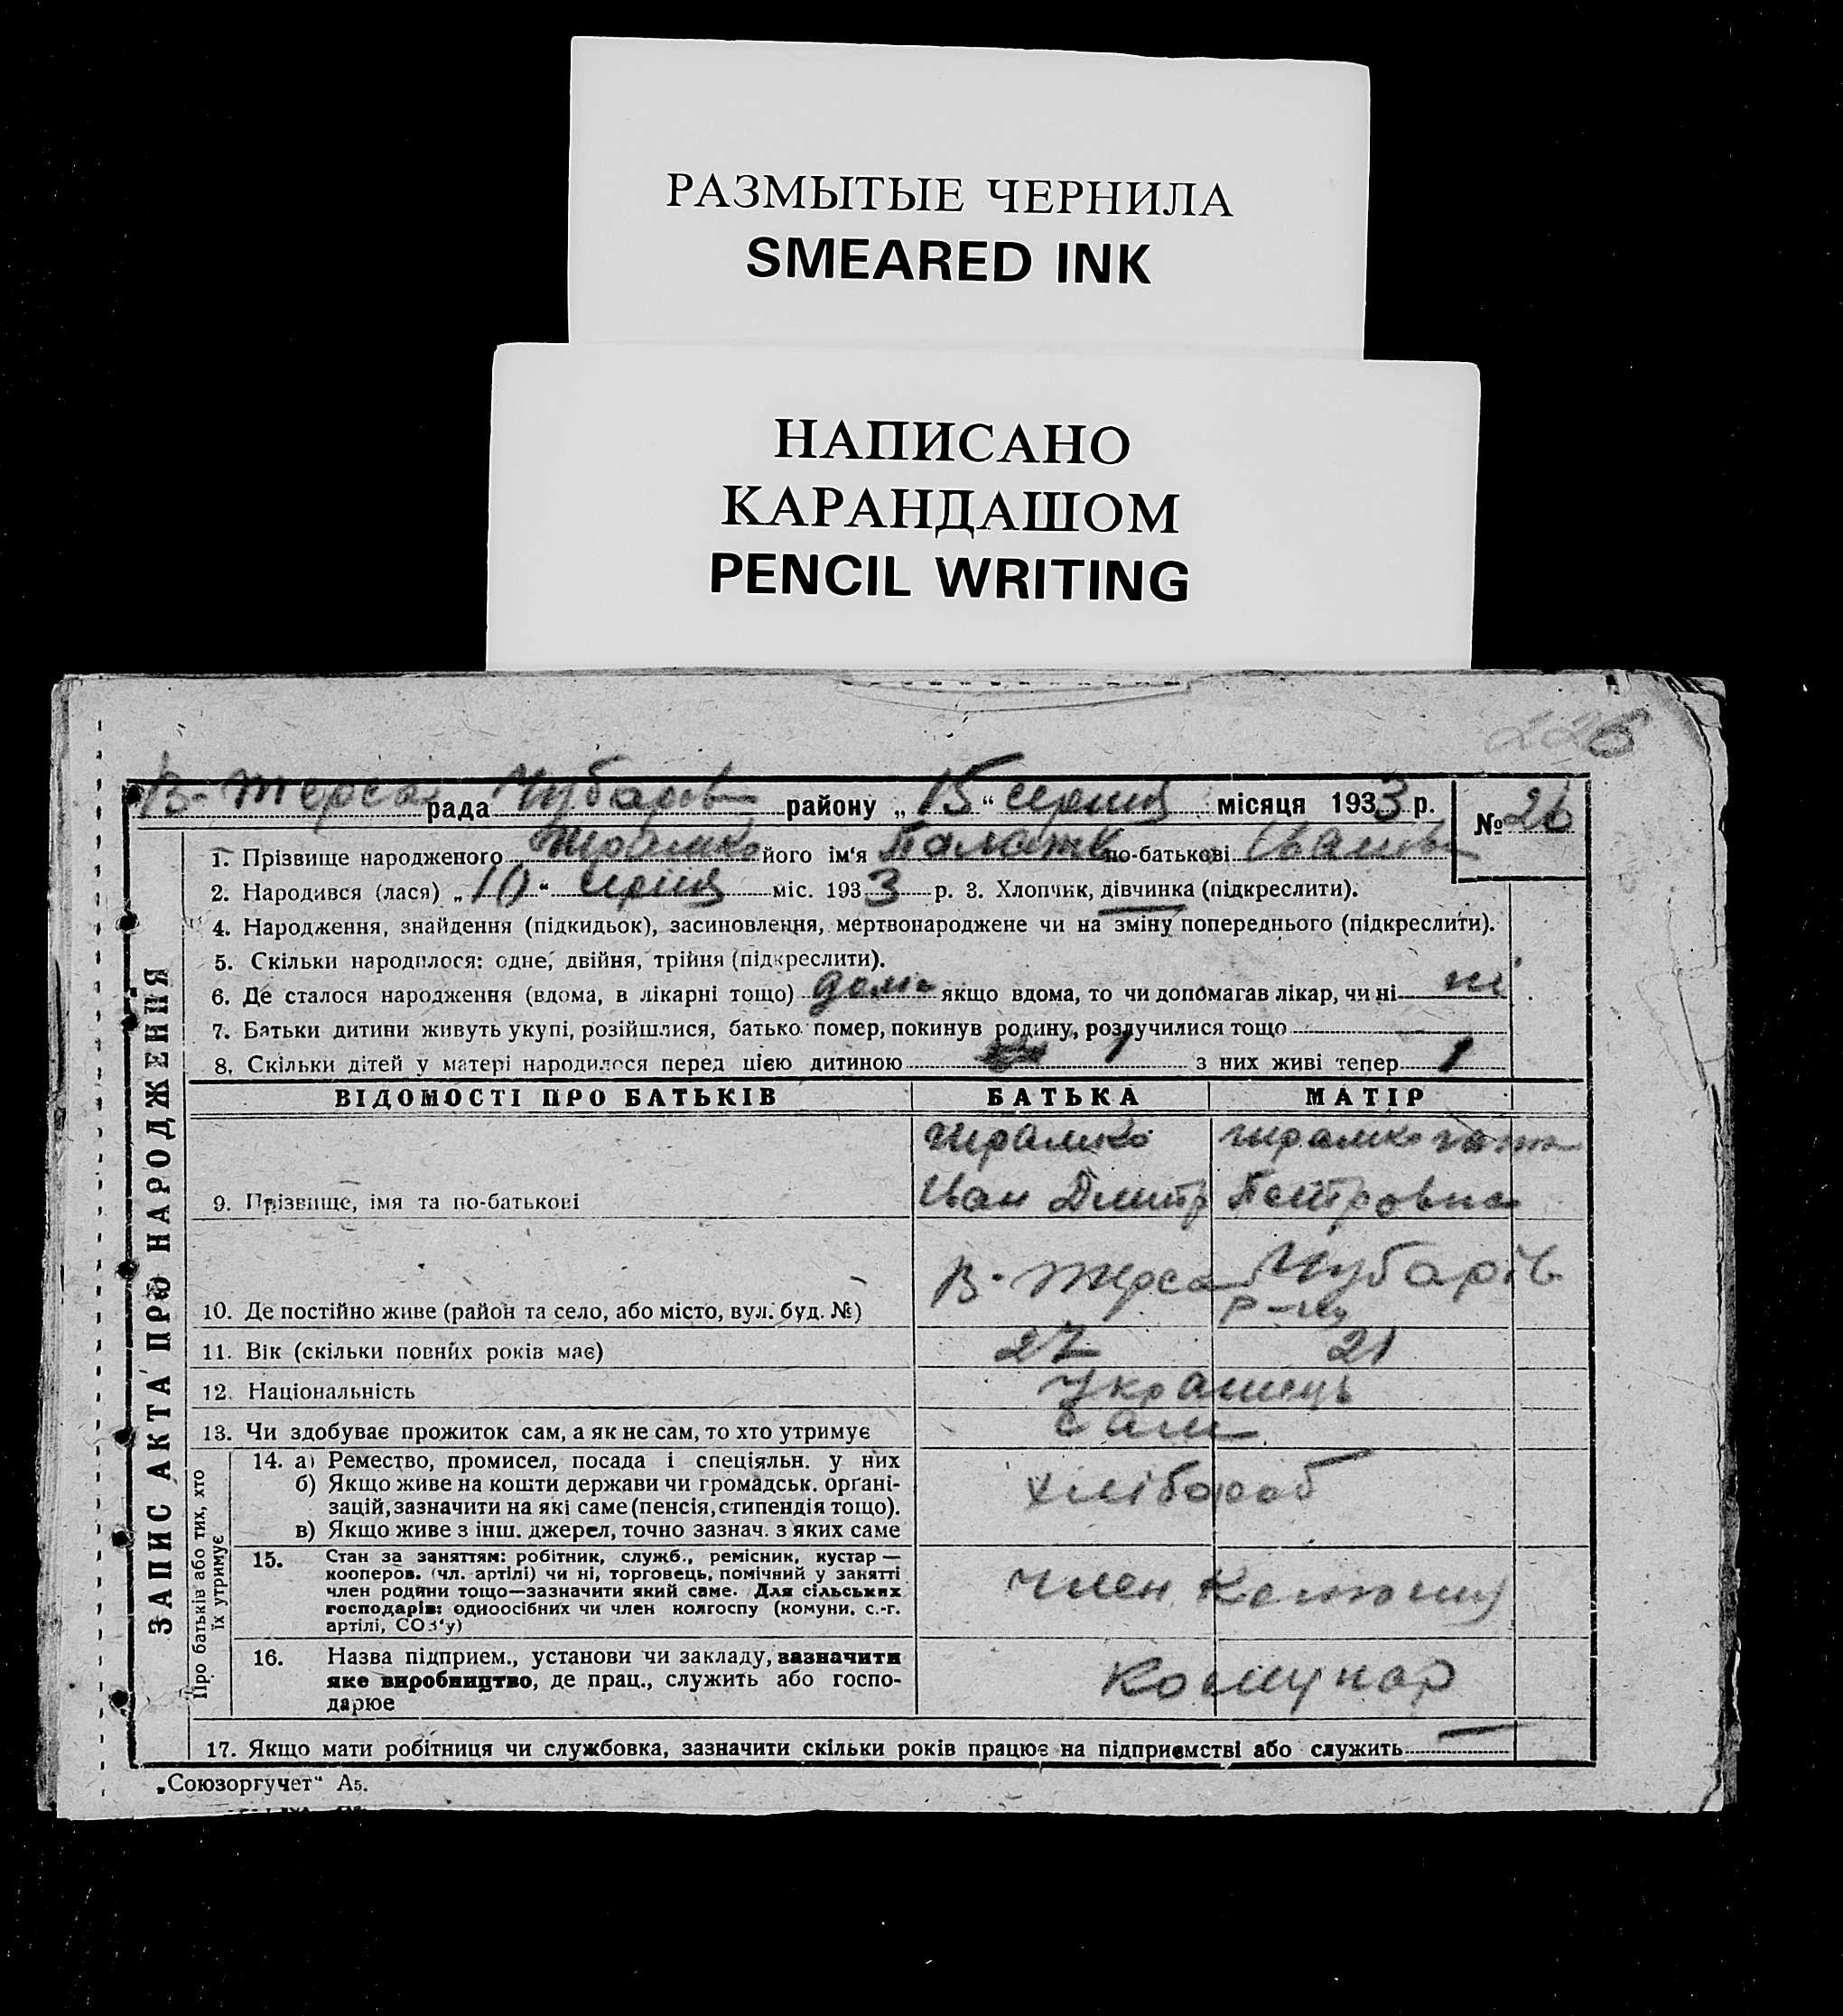 РАЗМЫТЫЕ ЧЕРНИЛА
SMEARED INK
НАПИСАНО
КАРАНДАШОМ
PENCIL WRITING
226
В-Терса рада Чубаров району „15“ серпня місяця 1933 р. № 26
1. Прізвище народженого його ім'я Палажк по-батькові Іванов
2. Народився (лася) „10“ серпня міс. 1933 р. 3. Хлопчик, дівчинка (підкреслити).
4. Народження, знайдення (підкидьок), засиновлення, мертвонароджене чи на зміну попереднього (підкреслити).
5. Скільки народилося: одне, двійня, трійня (підкреслити).
6. Де сталося народження (вдома, в лікарні тощо) дома якщо вдома, то чи допомагав лікар, чи ні ні
7. Батьки дитини живуть укупі, розійшлися, батько помер, покинув родину, розлучилися тощо
8. Скільки дітей у матері народилося перед цією дитиною 1 з них живі тепер 1
ЗАПИС АКТА ПРО НАРОДЖЕННЯ
ВІДОМОСТІ ПРО БАТЬКІВ БАТЬКА МАТІР
9. Прізвище, імя та по-батькові
Іван Дмитр Петровна
10. Де постійно живе (район та село, або місто, вул. буд. №) В-Терса Чубарів
р-ну
11. Вік (скільки повних років має) 27 21
12. Національність Українець
13. Чи здобуває прожиток сам, а як не сам, то хто утримує Сам
Про батьків або тих, хто
їх утримує
14. а) Ремество, промисел, посада і спеціяльн. у них
б) Якщо живе на кошти держави чи громадськ. орґані-
зацій, зазначити на які саме (пенсія, стипендія тощо).
в) Якщо живе з інш. джерел, точно зазнач. з яких саме
хлібороб
15. Стан за заняттям: робітник, служб., ремісник, кустар —
кооперов. (чл. артілі) чи ні, торговець, помічний у занятті
член родини тощо—зазначити який саме. Для сільських
господарів: одноосібних чи член колгоспу (комуни, с.-г.
артілі, СОЗ'у)
член
16. Назва підприєм., установи чи закладу, зазначити
яке виробництво, де прац., служить або госпо-
дарює
Комунар
17. Якщо мати робітниця чи службовка, зазначити скільки років працює на підприємстві або служить —
„Союзоргучет“ А5.